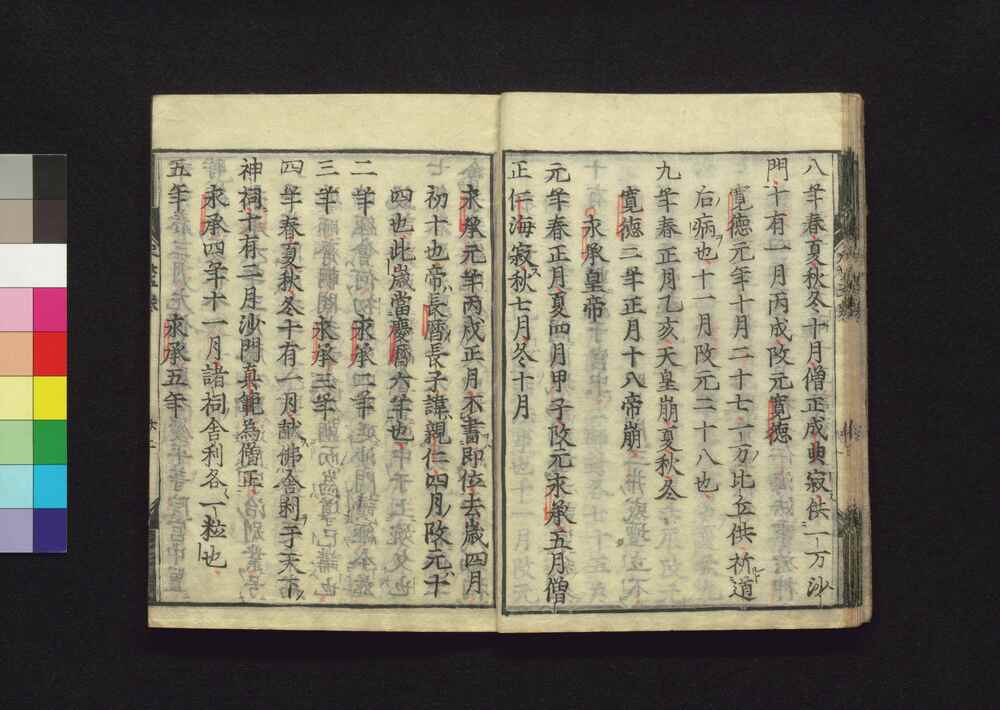 八年春夏秋冬十月僧正成典寂供一万沙
門十有一月丙戌改元寛徳
寛徳元年十月二十七一万比丘供祈道
后病也十一月改元二十八也
九年春正月乙亥天皇崩夏秋冬
寛徳二年正月十八帝崩
永承皇帝
元年春正月夏四月甲子改元永承五月僧
正仁海寂秋七月冬十月
永承元年丙戌正月不書即位去歳四月
初十也帝長暦長子諱親仁四月改元十
四也此歳當慶暦六年也
二年 永承二年
三年 永承三年
四年春夏秋冬十有一月献佛舎利于天下
神祠十有二月沙門真範為僧正
永承四年十一月諸祠舎利各一粒也
五年 永承五年